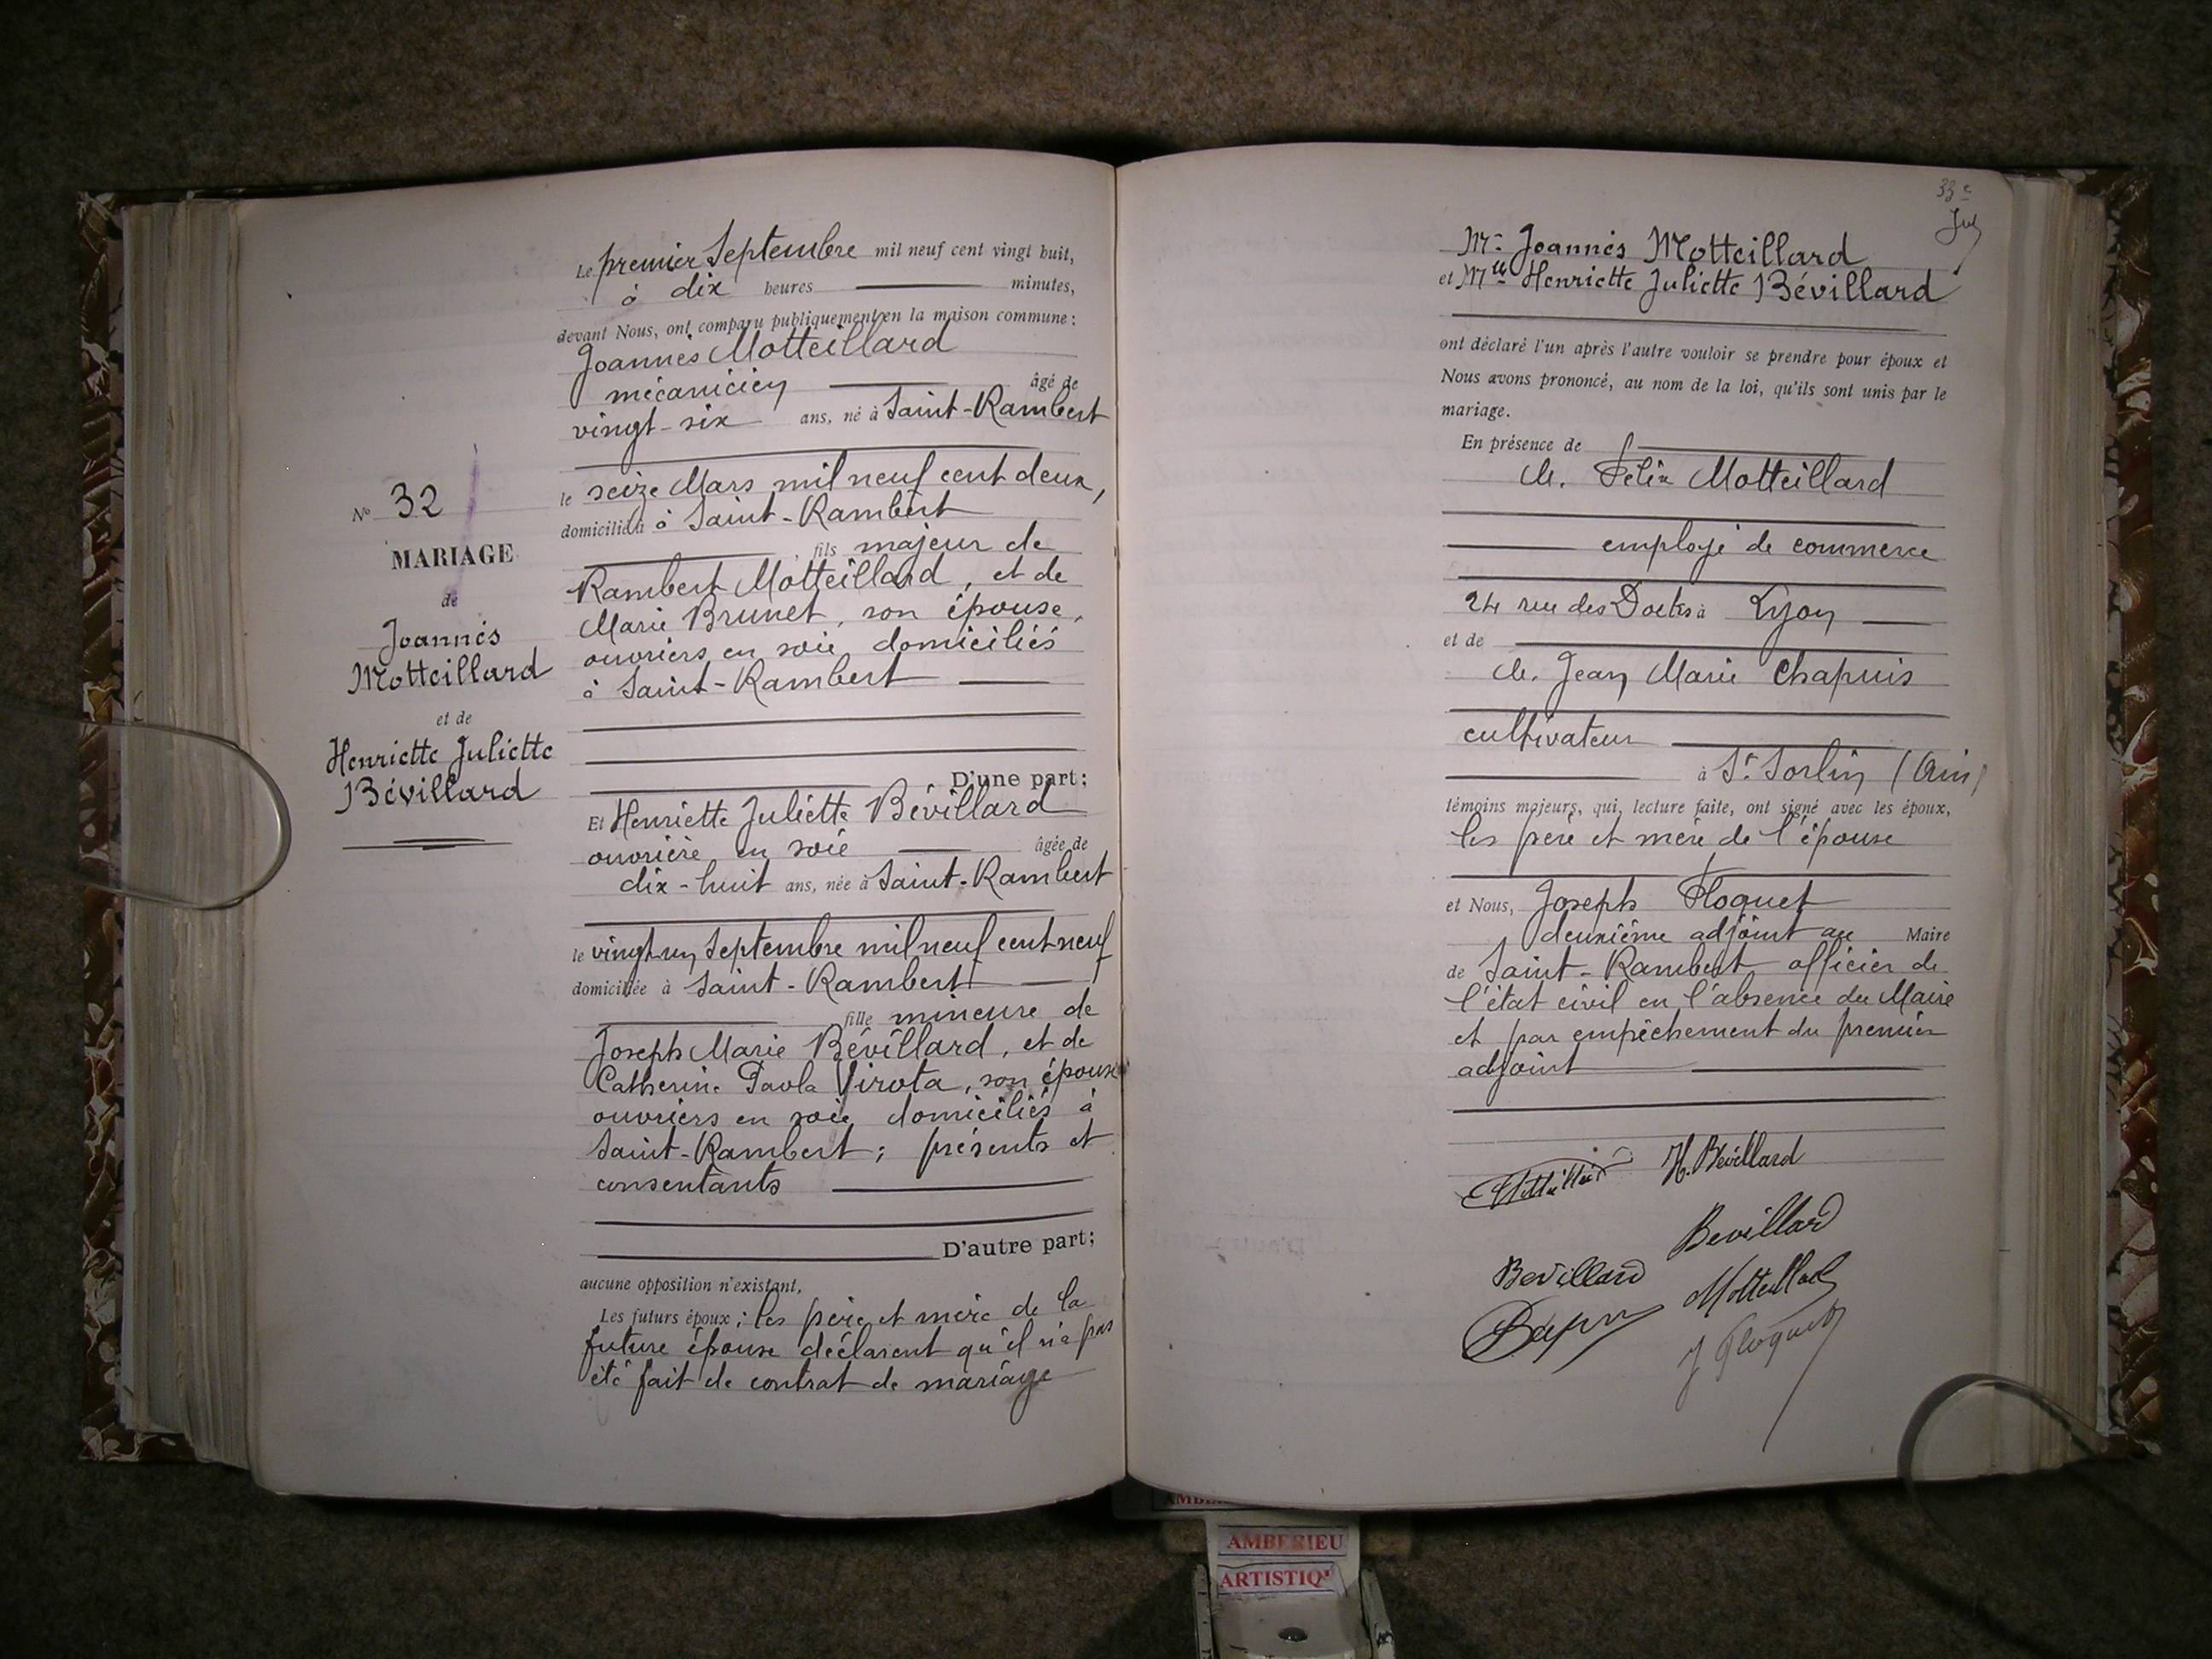 Le premier Septembre mil neuf cent vingt huit,
à dix heures minutes,
devant Nous, ont comparu publiquement en la maison commune :
Joannès Motteillard
mécanicien âgé de
vingt-six ans, né à Saint-Rambert
le seize Mars mil neuf cent deux,
domicilié à Saint-Rambert
fils majeur de
Rambert Motteillard, et de
Marie Brunet, son épouse,
ouvriers en soie domiciliés
à Saint-Rambert
D'une part;
Et Henriette Juliette Bévillard
ouvrière en soie âgée de
dix-huit ans, née à Saint-Rambert
le vingt-un Septembre mil neuf cent neuf
domiciliée à Saint-Rambert
fille mineure de
Joseph Marie Bévillard, et de
Catherine Paola Virota, son épouse
ouvriers en soie domiciliés à
Saint-Rambert; présents et
consentants
D'autre part;
aucune opposition n'existant,
Les futurs époux; les père et mère de la
future épouse déclarent qu'il n'a pas
été fait de contrat de mariage
No 32
MARIAGE
de
Joannès
Motteillard
et de
Henriette Juliette
Bévillard
33e
Mr Joannès Motteillard
et Mlle Henriette Juliette Bévillard
ont déclaré l'un après l'autre vouloir se prendre pour époux et
Nous avons prononcé, au nom de la loi, qu'ils sont unis par le
mariage.
En présence de
M. Félix Motteillard
employé de commerce
24 rue des à Lyon
et de
M. Jean Marie Chapuis
cultivateur
à St Sorlin (Ain)
témoins majeurs, qui, lecture faite, ont signé avec les époux,
les père et mère de l'épouse
et Nous, Joseph Floquet
deuxième adjoint au Maire
de Saint-Rambert officier de
l'état civil en l'absence du Maire
et par empêchement du premier
adjoint
H. Bevillard
Bevillard
Bevillard
Motteillard
J Floquet
AMBERIEU
ARTISTIQU